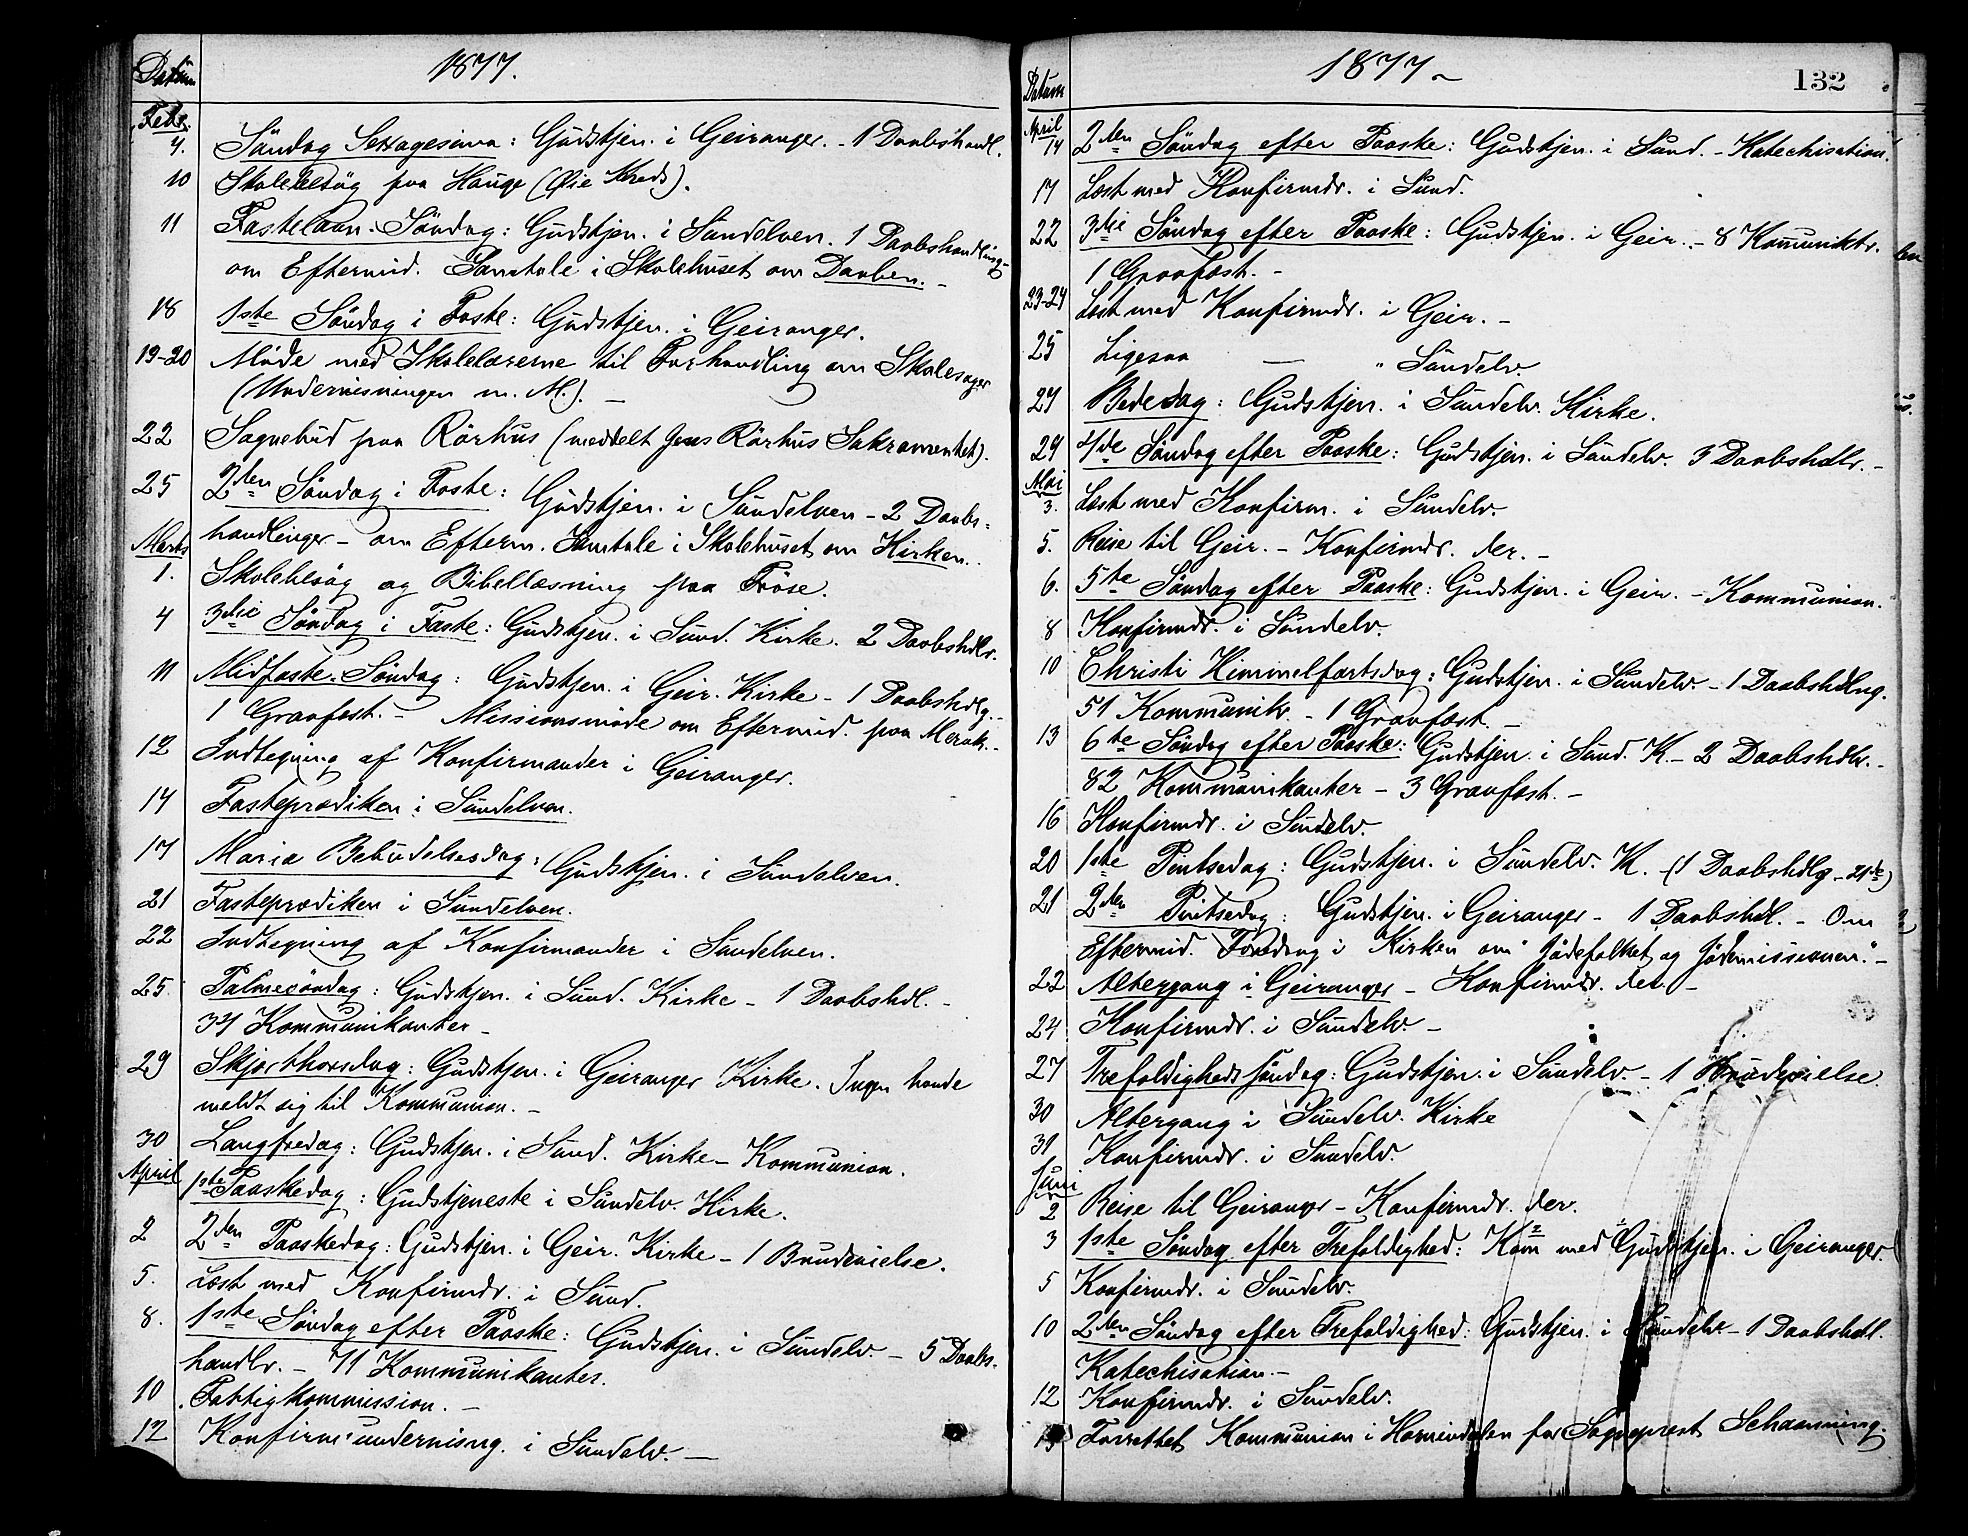 Datum
1877.
Febr.
4. Söndag Sexagesima: Gudstjen. i Geiranger. - 1 Daabshandl.
10 Skolebesög paa Hauge (Øie Kreds).
11 Fastelavn-Söndag: Gudstjen. i Sundelven. 1 Daabshandling -
om Eftermid. Samtale i Skolehuset om Daaben. -
18 1ste Söndag i Faste: Gudstjen. i Geiranger.
19-20 Möde med Skolelærerne til Forhandling om Skolesager
(Undervisningen m. M.). -
22 Sognebud paa Rörhus (meddelt Jens Rörhus Sakramentet).
25 2den Söndag i Faste: Gudstjen. i Sundelven - 2 Daabs-
handlinger - om Efterm. Samtale i Skolehuset om Kirken.
Marts
1. Skolebesög og Bibellæsning paa Fröse.
4 3die Söndag i Faste: Gudstjen. i Sund. Kirke. 2 Daabshdlr.
11 Midfaste-Söndag: Gudstjen. i Geir. Kirke - 1 Daabshdlg. -
1 Gravfæst. - Missionsmöde om Eftermid. paa Merok. -
12 Indtegning af Konfirmander i Geiranger.
14 Fasteprædiken i Sundelven.
17 Maria Bebudelsesdag: Gudstjen. i Sundelven.
21 Fasteprædiken i Sundelven.
22 Indtegning af Konfirmander i Sundelven.
25. Palmesöndag: Gudstjen. i Sund. Kirke - 1 Daabshdl. -
34 Kommunikanter -
29 Skjærthorsdag: Gudstjen. i Geiranger Kirke. Ingen havde
meldt sig til Kommunion. -
30 Langfredag: Gudstjen. i Sund. Kirke - Kommunion.
April 1ste Paaskedag: Gudstjeneste i Sundelv. Kirke.
2 2den Paaskedag: Gudstjen. i Geir. Kirke - 1 Brudevielse.
5. Læst med Konfirmdr. i Sund.
8. 1ste Söndag efter Paaske: Gudstjen. i Sundelv. - 5 Daabs-
handlr. - 71 Kommunikanter.
10 Fattigkommission. -
12 Konfirm.undervisng. i Sundelv. -
Datum
1877 -
132
April
14 2den Söndag efter Paaske: Gudstjen. i Sund. - Katechisation.
17 Læst med Konfirmdr. i Sund.
22 3die Söndag efter Paaske: Gudstjen. i Geir. - 8 Kommuniktr.
1 Gravfæst. -
23-24 Læst med Konfirmdr. i Geir. -
25 Ligesaa — " Sundelv.
27 Bededag: Gudstjen. i Sundelv. Kirke.
29 4de Söndag efter Paaske: Gudstjen. i Sundelv. 3 Daabshdlr. -
Mai
3. Læst med Konfirm. i Sundelv.
5. Reise til Geir. - Konfirmdr. der. -
6. 5te Söndag efter Paaske: Gudstjen. i Geir. - Kommunion.
8 Konfirmdr. i Sundelv.
10 Christi Himmelfartsdag: Gudstjen. i Sundelv. - 1 Daabshdlng.
51 Kommunikr. - 1 Gravfæst. -
13 6te Söndag efter Paaske: Gudstjen. i Sund. K. - 2 Daabshdlr. -
82 Kommunikanter - 3 Gravfæst. -
16 Konfirmdr. i Sundelv.
20 1ste Pintsedag: Gudstjen. i Sundelv. K. - (1 Daabshdlg - 21de)
21 2den Pintsedag: Gudstjen. i Geiranger - 1 Daabshdl. - Om
Eftermid. Foredrag i Kirken om "Jödefolket og Jödemissionen." -
22 Altergang i Geiranger - Konfirmdr. der. -
24 Konfirmdr. i Sundelv. -
27 Trefoldigheds Söndag: Gudstjen. i Sundelv. - 1 Brudevielse.
30 Altergang i Sundelv. Kirke
31 Konfirmdr. i Sundelv.
Juni
2 Reise til Geiranger - Konfirmdr. der.
3 1ste Söndag efter Trefoldighed: Kom med Gudstjen. i Geiranger.
5 Konfirmdr. i Sundelv.
10 2den Söndag efter Trefoldighed: Gudstjen. i Sundelv. - 1 Daabshdl.
Katechisation. -
12 Konfirmdr. i Sundelv.
Forrettet Kommunion i Hornindalen for Sogneprest Schaanning.